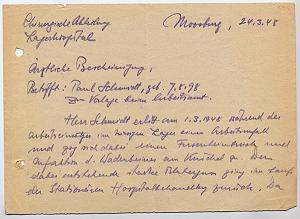 Chirurgische Abteilung
Lagerhospital
Moosburg, 24.3.48
Ärztliche Bescheinigung,
Betrifft: Paul Schmidt, geb. 7.8.98
zur Vorlage beim Arbeitsamt.
Herr Schmidt erlitt am 1.3.1948 während des
Arbeitseinsatzes im hiesigen Lager einen Arbeitsunfall
und zog sich dabei einen Fersenbeinbruch und
des Wadenbeines am Knöchel zu. Der
dabei entstehende starke Bluterguss ging im Laufe
der Stationären Hospitalbehandlung zurück. Da